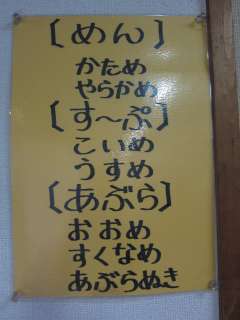 [めん]
かため
やらかめ
[す〜ぷ]
こいめ
うすめ
[あぶら]
おおめ
すくなめ
あぶらぬき